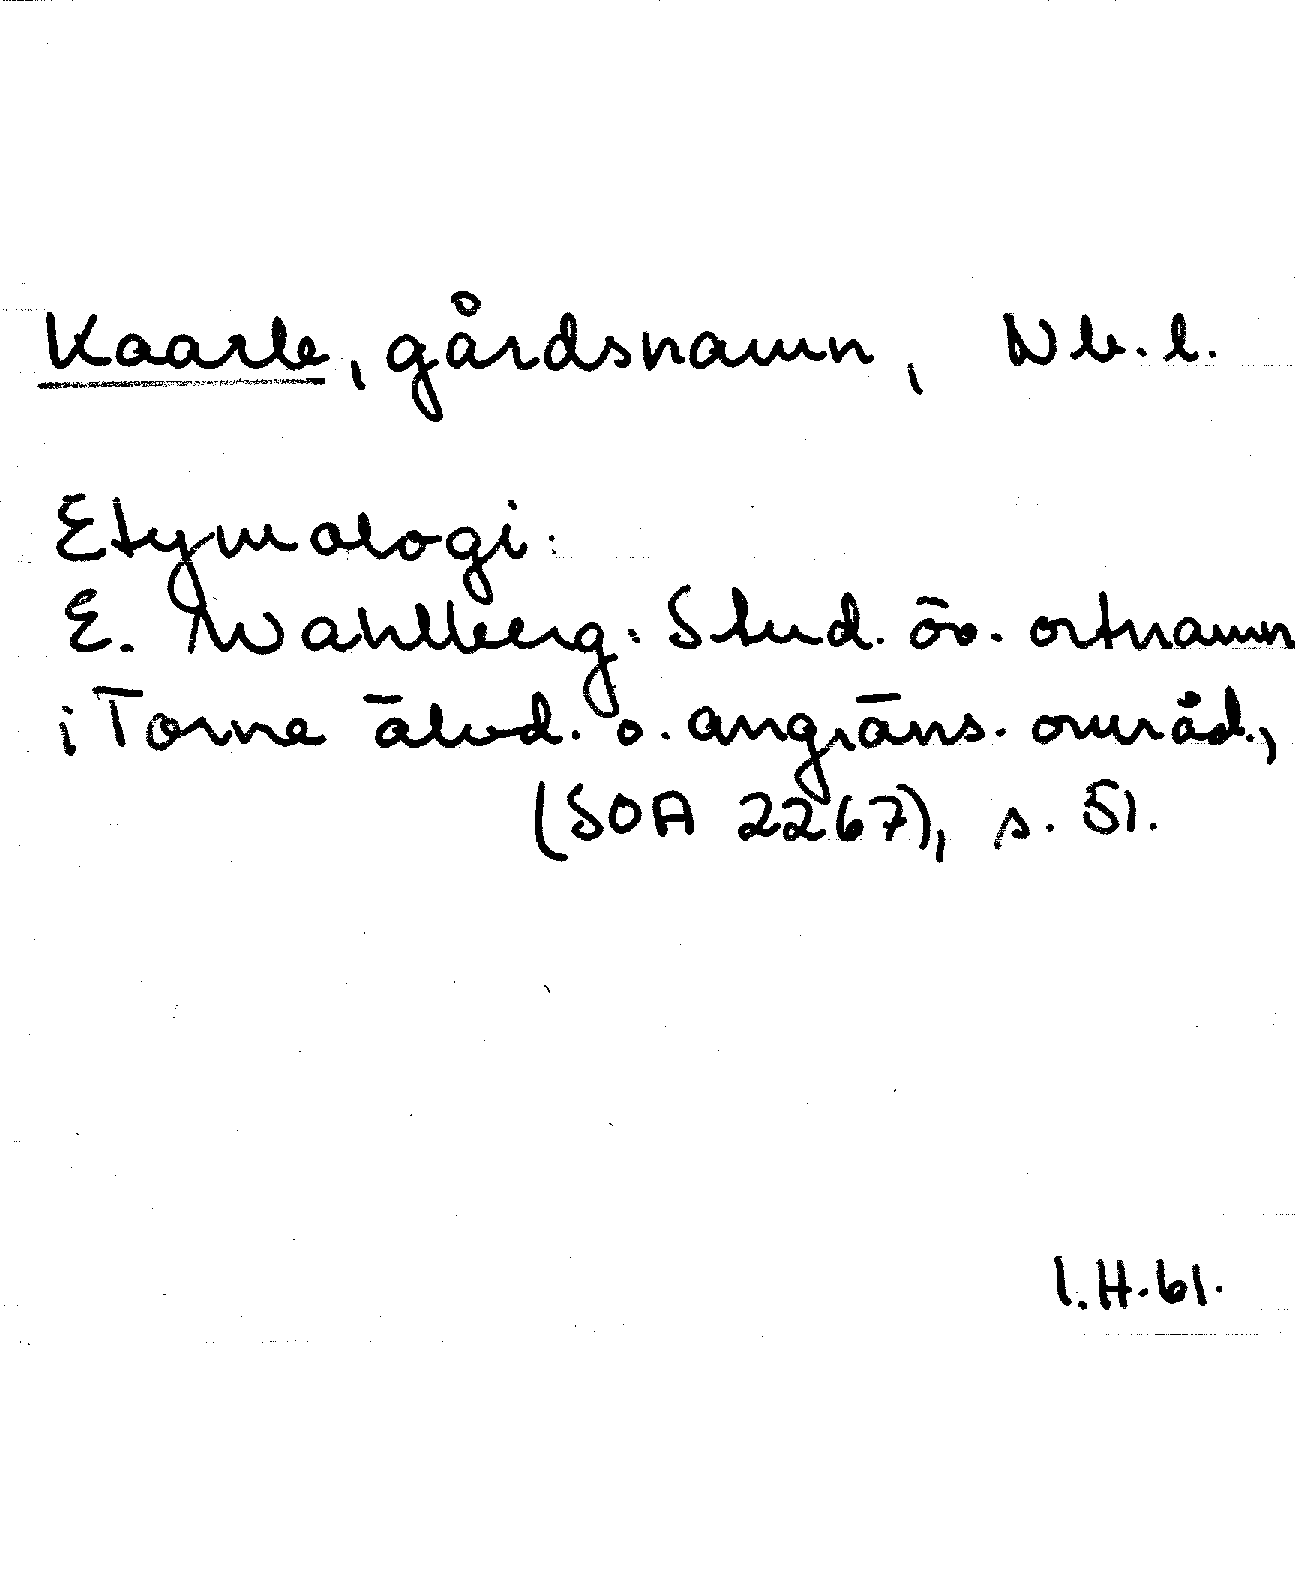 Kaarle, gårdsnamn, Nb. l.
Etymologi:
E. Wahlberg: Stud. öv. ortnamn
i Torne älvd. o. angräns. områd.,
(SOA 2267), s. 51.
I.H.61.